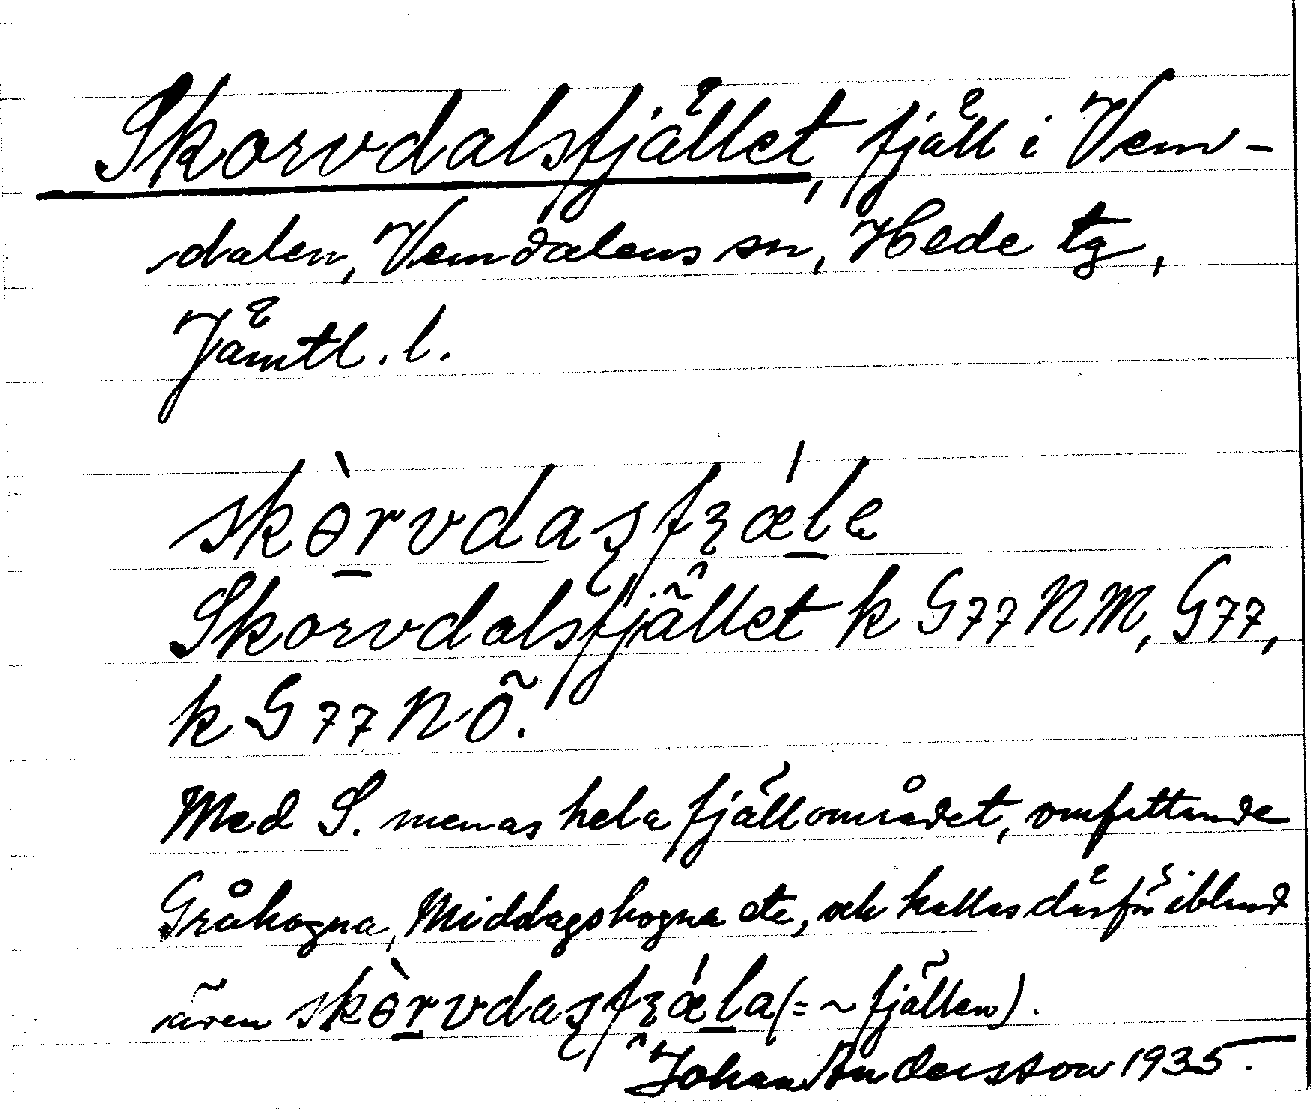 Skorvdalsfjället, fjäll i Vem-
dalen, Vemdalens sn, Hede tg,
Jämtl. l.
skɵ̀rvdasfʒǽle
Skorvdalsfjället k G77NM, G77,
k G77NÖ.
Med S. menas hela fjällområdet, omfattande
Gråhogna, Middagshogna etc, och kallas därför ibland
även skɵ̀rvdasfʒǽla (= ~ fjällen).
Johan Andersson 1935.